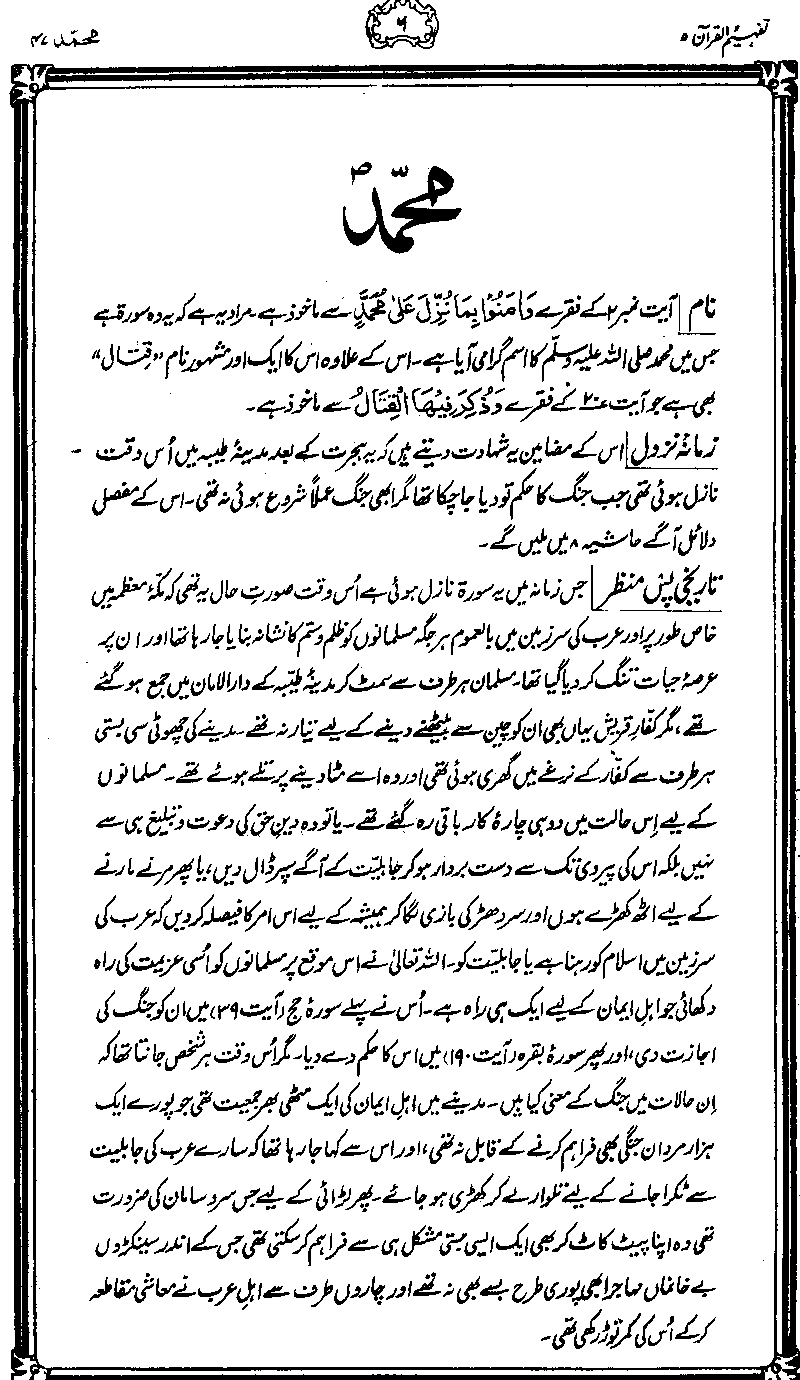 تفہیم القرآن ۵
۶
محمّد ۴۷
محمّدؐ
نام آیت نمبر ۲ کے فقرے وَاٰمَنُوْا بِمَا نُزِّلَ عَلٰی مُحَمَّدٍ سے ماخوذ ہے۔ مراد یہ ہے کہ یہ وہ سورۃ ہے
جس میں محمد صلی اللہ علیہ وسلّم کا اسم گرامی آیا ہے۔ اس کے علاوہ اس کا ایک اور مشہور نام ”قِتال“
بھی ہے جو آیت ۲۰ کے فقرے وَذُكِرَ فِيْهَا الْقِتَالُ سے ماخوذ ہے۔
زمانۂ نزول اس کے مضامین یہ شہادت دیتے ہیں کہ یہ ہجرت کے بعد مدینۂ طیبہ میں اُس وقت
نازل ہوئی تھی جب جنگ کا حکم تو دیا جا چکا تھا مگر ابھی جنگ عملاً شروع ہوئی نہ تھی۔ اس کے مفصل
دلائل آگے حاشیہ ۸ میں ملیں گے۔
تاریخی پس منظر جس زمانہ میں یہ سورۃ نازل ہوئی ہے اُس وقت صورتِ حال یہ تھی کہ مکّۂ معظمہ میں
خاص طور پر اور عرب کی سرزمین میں بالعموم ہر جگہ مسلمانوں کو ظلم و ستم کا نشانہ بنایا جا رہا تھا اور ان پر
عرصۂ حیات تنگ کر دیا گیا تھا۔ مسلمان ہر طرف سے سمٹ کر مدینۂ طیّبہ کے دار الامان میں جمع ہو گئے
تھے، مگر کفّارِ قریش یہاں بھی ان کو چین سے بیٹھنے دینے کے لیے تیار نہ تھے۔ مدینے کی چھوٹی سی بستی
ہر طرف سے کفّار کے نرغے میں گھری ہوئی تھی اور وہ اسے مٹا دینے پر تلے ہوئے تھے۔ مسلمانوں
کے لیے اِس حالت میں دو ہی چارۂ کار باقی رہ گئے تھے۔ یا تو وہ دینِ حق کی دعوت و تبلیغ ہی سے
نہیں بلکہ اس کی پیروی تک سے دست بردار ہو کر جاہلیّت کے آگے سپر ڈال دیں، یا پھر مرنے مارنے
کے لیے اٹھ کھڑے ہوں اور سر دھڑ کی بازی لگا کر ہمیشہ کے لیے اس امر کا فیصلہ کر دیں کہ عرب کی
سرزمین میں اسلام کو رہنا ہے یا جاہلیّت کو۔ اللہ تعالیٰ نے اس موقع پر مسلمانوں کو اُسی عزیمت کی راہ
دکھائی جو اہلِ ایمان کے لیے ایک ہی راہ ہے۔ اُس نے پہلے سورۂ حج (آیت ۳۹) میں ان کو جنگ کی
اجازت دی، اور پھر سورۂ بقرہ (آیت ۱۹۰) میں اس کا حکم دے دیا۔ مگر اُس وقت ہر شخص جانتا تھا کہ
اِن حالات میں جنگ کے معنی کیا ہیں۔ مدینے میں اہلِ ایمان کی ایک مٹھی بھر جمعیت تھی جو پورے ایک
ہزار مردانِ جنگی بھی فراہم کرنے کے قابل نہ تھی، اور اس سے کہا جا رہا تھا کہ سارے عرب کی جاہلیت
سے ٹکرا جانے کے لیے تلوار لے کر کھڑی ہو جائے۔ پھر لڑائی کے لیے جس سر و سامان کی ضرورت
تھی وہ اپنا پیٹ کاٹ کر بھی ایک ایسی بستی مشکل ہی سے فراہم کر سکتی تھی جس کے اندر سینکڑوں
بے خانماں مہاجر ابھی پوری طرح بسے بھی نہ تھے اور چاروں طرف سے اہلِ عرب نے معاشی مقاطعہ
کر کے اُس کی کمر توڑ رکھی تھی۔